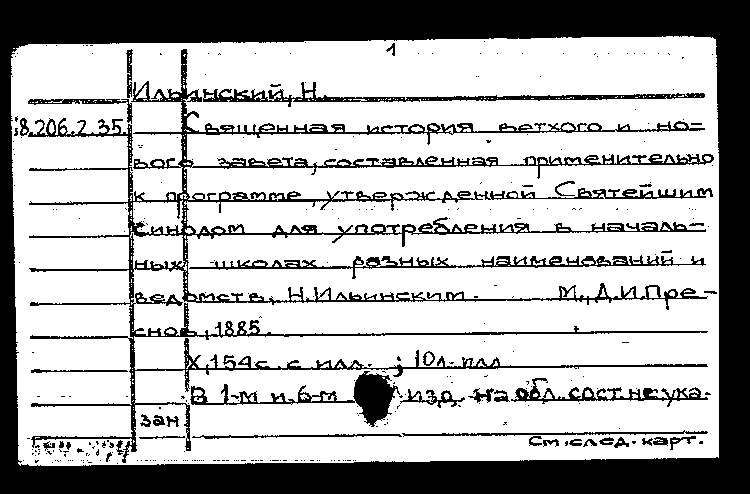 1
Ильинский, Н.
8.206.2.35 Священная история ветхого и но-
вого завета, составленная применительно
к программе, утвержденной Святейшим
Синодом для употребления в началь-
ных школах разных наименований и
ведомств, Н.Ильинским. М., Д.И.Пре-
снов, 1885.
X, 154 с. с илл. ; 10 л. илл
В 1-м и 6-м изд. на обл. сост. не ука-
зан
См. след. карт.